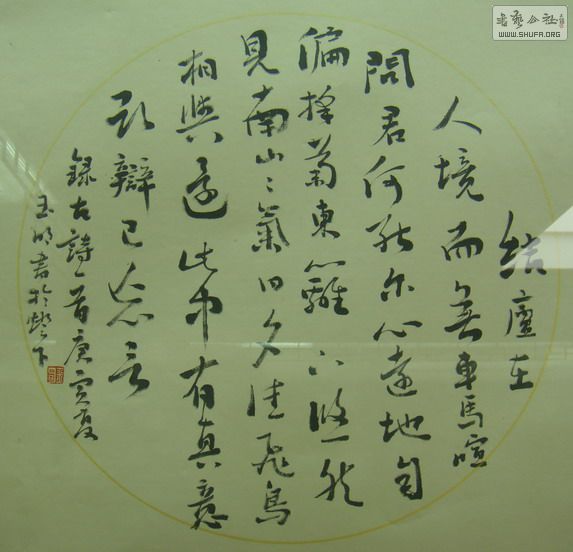 結廬在
人境而無車馬喧
問君何能尔心遠地自
偏採菊東籬下悠然
見南山〻氣日夕佳飛鳥
相與還此中有真意
欲辯已忘言
録古詩一首庚寅夏
玉書於燈下
書藝公社
WWW.SHUFA.ORG